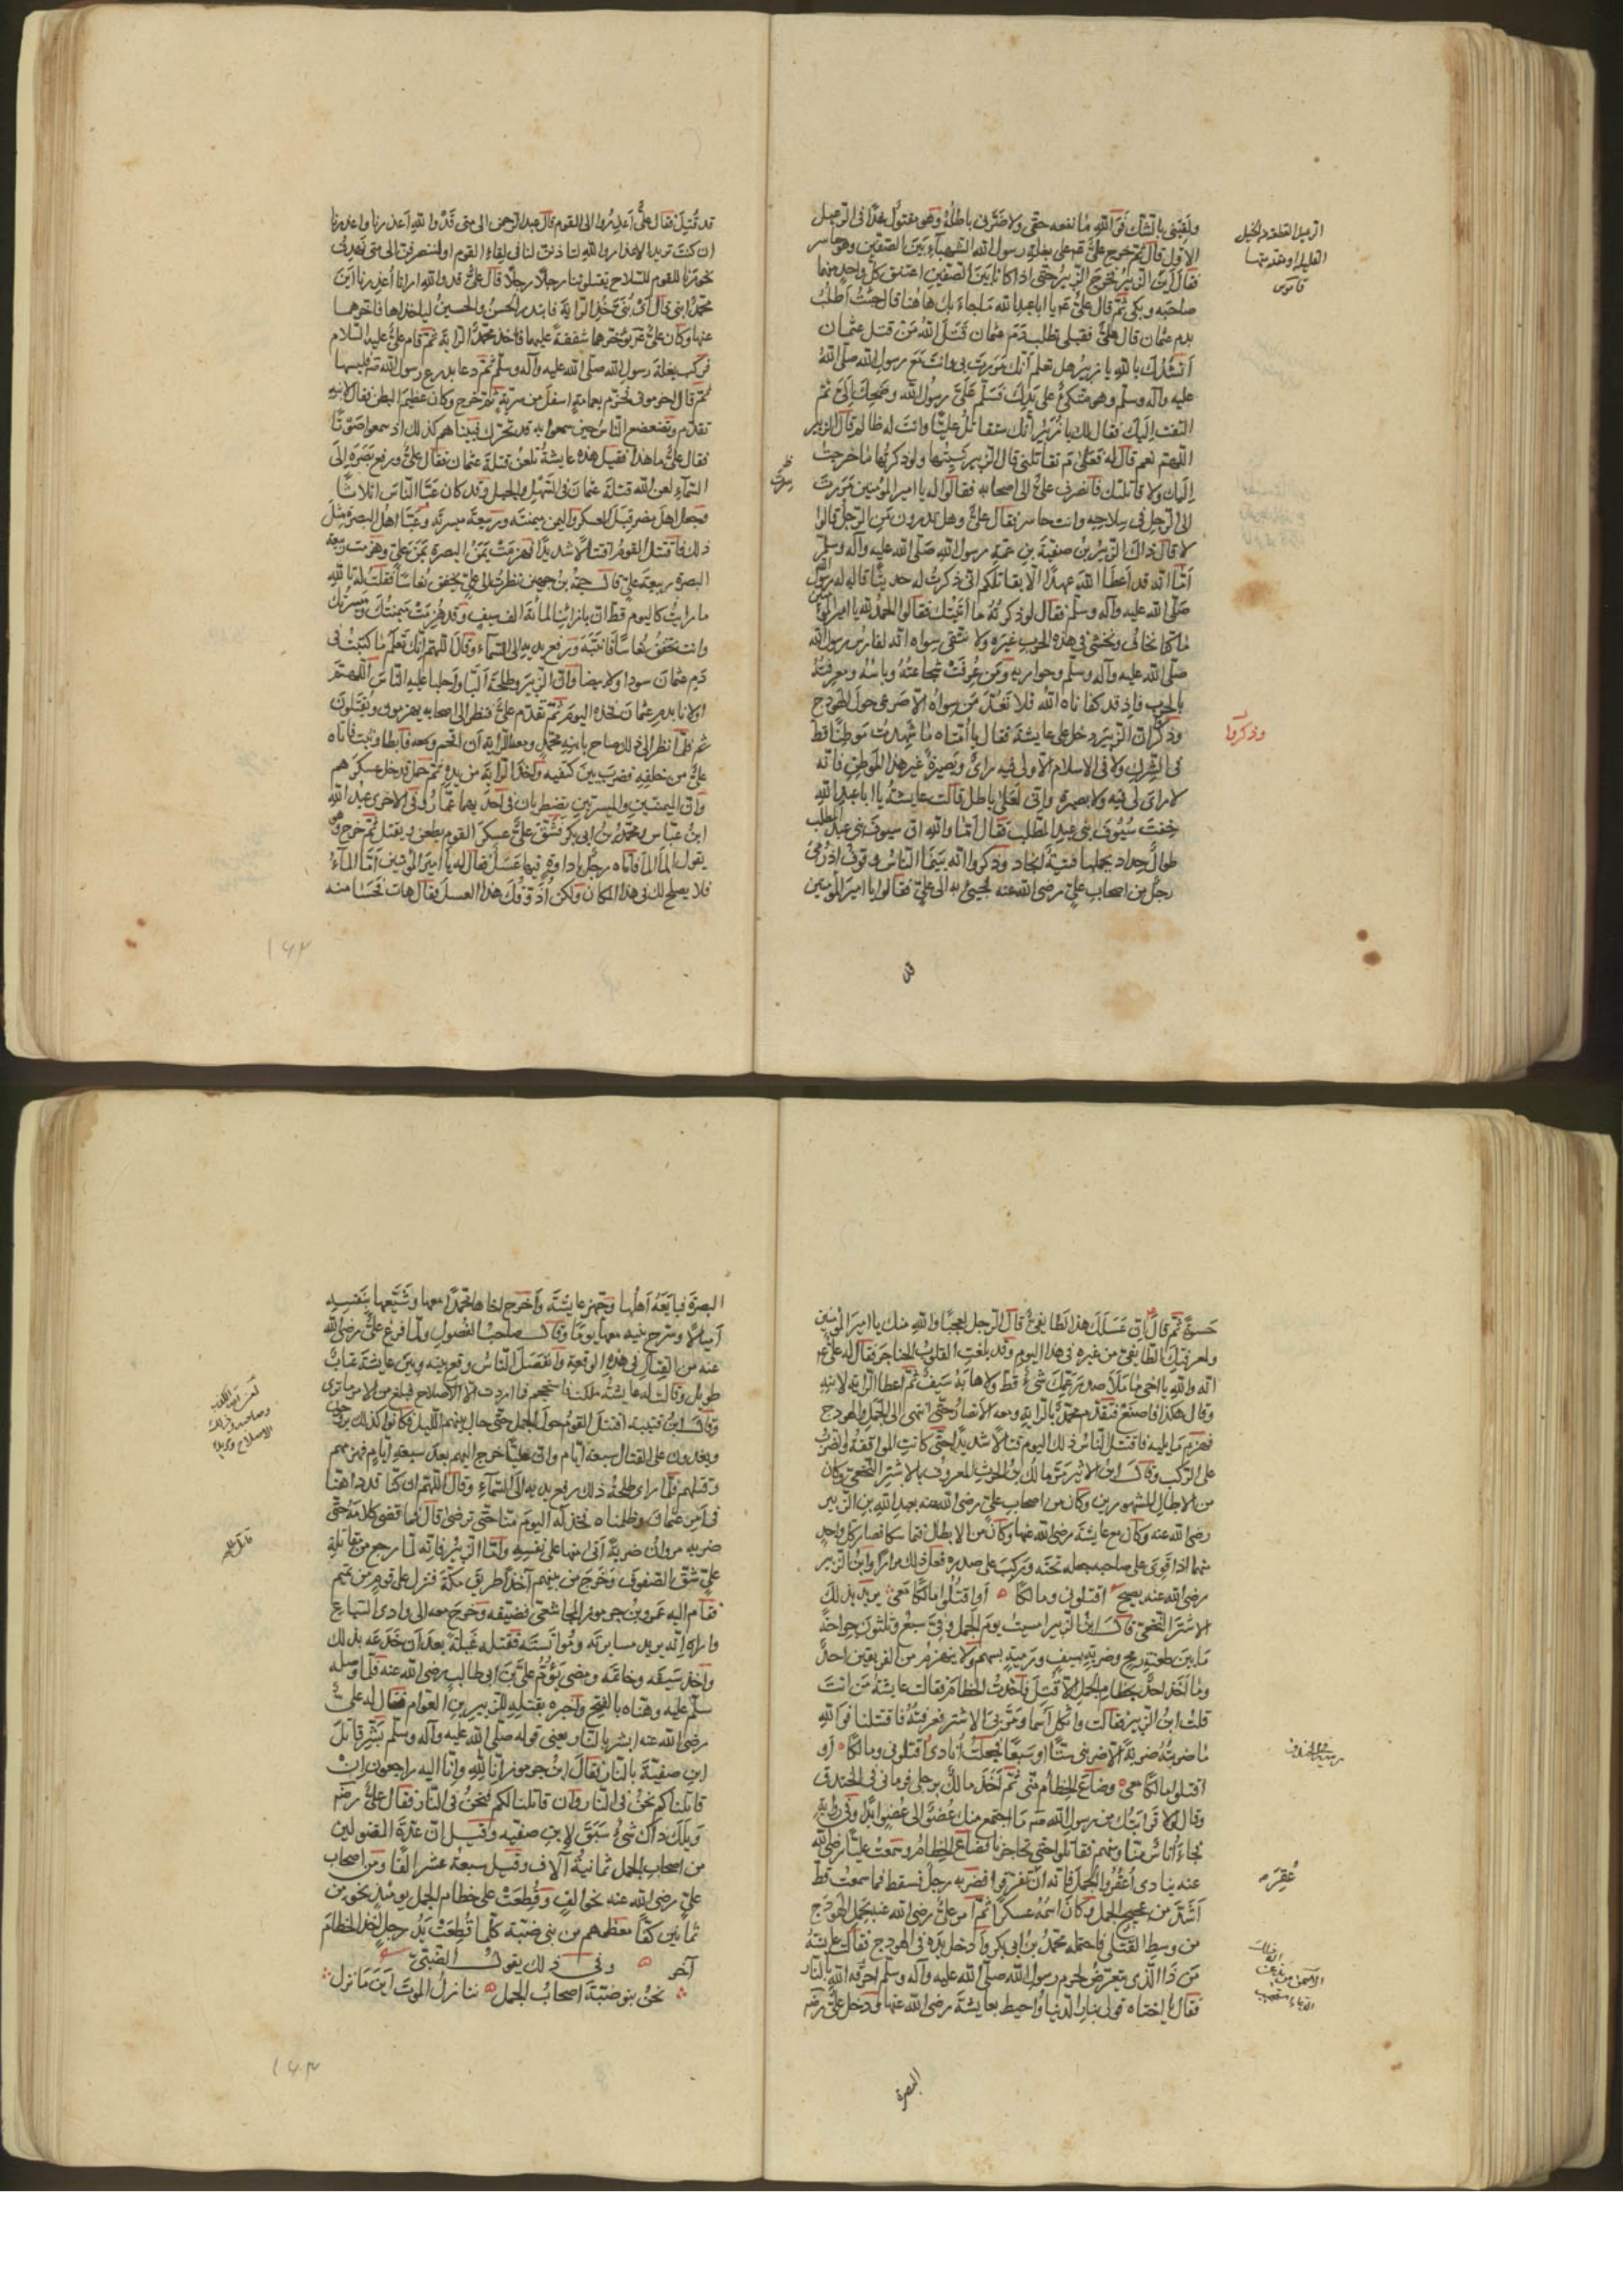 ولقيني بالشك فوالله ما نفعه حقي ولا ضرني باطله وهو مقتول غدا في الرعيل
الاول قال ثم خرج علي على بغلة رسول الله الشهباء بين الصفين وهو حاسر
فقال اين الزبير فخرج الزبير حتى اذا كانا بين الصفين اعتنق كل واحد منهما
صاحبه وبكى ثم قال علي يا ابا عبد الله ما جاء بك هاهنا قال جئت اطلب
بدم عثمان قال علي تطلب دم عثمان قتل الله من قتل عثمان
انشدك بالله يا زبير هل تعلم انك مررت بي وانت مع رسول الله صلى الله
عليه وآله وسلم وهو متكئ على يدك فسلم علي رسول الله وضحك الي ثم
التفت اليك فقال لك يا زبير انك ستقاتل عليا وانت له ظالم قال الزبير
اللهم نعم قال له فعلام تقاتلني قال الزبير نسيتها ولو ذكرتها ما خرجت
اليك ولا قاتلتك فانصرف علي الى اصحابه فقالوا له يا امير المؤمنين مررت
الى الرجل في سلاحه وانت حاسر فقال علي وهل تدرون من الرجل قالوا
لا قال ذاك الزبير بن صفية بن عمة رسول الله صلى الله عليه وآله وسلم
اما انه قد اعطا الله عهدا الا يقاتلكم اني ذكرت له حديثا قاله له رسول الله
صلى الله عليه وآله وسلم فقال لو ذكرته ما اتيتك فقالوا الحمد لله يا امير المؤمنين
ما كنا نخاف ونخشى في هذه الحرب غيره ولا نتقي سواه انه لفارس رسول الله
صلى الله عليه وآله وسلم وحواريه ومن عرفت شجاعته وباسه ومعرفته
بالحرب فاذ قد كفاناه الله فلا نعد من سواه الا صرعى حول الهودج
وذكرا ان الزبير دخل على عايشة فقال يا امتاه ما شهدت موطنا قط
في الشرك ولا في الاسلام الا ولي فيه راي وبصيرة غير هذا الموطن فانه
لا راي لي فيه ولا بصيرة واني لعلى باطل قالت عايشة يا ابا عبد الله
خفت سيوف بني عبد المطلب فقال اما والله ان سيوف بني عبد المطلب
طوال حداد يحملها فتية انجاد وذكروا انه بينما الناس وقوف اذ رمي
رجل من اصحاب علي رضي الله عنه فجيء به الى علي فقالوا يا امير المؤمنين
الرعيل القطعة من الخيل
القليلة او مقدمتها
قاموس
وذكروا
قد
قد قتل فقال علي اعذروا الى القوم قال عبد الرحمن الى متى قد والله اعذرنا واعذرنا
ان كنت تريد الاعذار والله لتاذنن لنا في لقاء القوم او لننصرفن الى متى تهدف
نحورنا للقوم للسلاح يقتلوننا رجلا رجلا قال علي قد والله ارانا اعذرنا اين
محمد ابني قال فقال اي بني خذ الراية فابتدر الحسن والحسين لياخذاها فاخرهما
عنها وكان علي يؤخرهما شفقة عليهما فاخذ محمد الراية ثم قام علي عليه السلام
فركب بغلة رسول الله صلى الله عليه وآله وسلم ثم دعا بدرع رسول الله صلعم فلبسها
ثم قال احزموني فحزم بعمامة اسفل من سرته ثم خرج وكان عظيم البطن فقال لابنه
تقدم وتضعضع الناس حين سمعوا به قد تحرك فبينا هم كذلك اذ سمعوا صوتا
فقال علي ما هذا فقيل هذه عايشة تلعن قتلة عثمان فقال علي ورفع بصره الى
السماء لعن الله قتلة عثمان في السهل والجبل وقد كان عبا الناس اثلاثا
فجعل اهل مصر قبل العسكر واليمن ميمنته وربيعة ميسرته وعبا اهل البصرة مثل
ذلك فاقتتل القوم قتالا شديدا فهزمت يمن البصرة يمن علي وهزمت ربيعة
البصرة ربيعة علي قال حية بن جهين نظرت الى علي يخفق نعاسا فقلت له تالله
ما رايت كاليوم قط ان بازائنا لمائة الف سيف وقد هزمت ميمنتك وميسرتك
وانت تخفق نعاسا فانتبه ورفع يديه الى السماء وقال اللهم انك تعلم ما كتبت في
دم عثمان سودا ولا بيضا وان الزبير وطلحة البا واجلبا عليه الناس اللهم
اولانا بدم عثمان فخذه اليوم ثم تقدم علي فنظر الى اصحابه يهزمون ويقتلون
فلما نظر الى ذلك صاح بابنه محمد ومعه الراية ان اقتحم فابطا وثبت فاتاه
علي من خلفه فضرب بين كتفيه واخذ الراية من يده ثم حمل فدخل عسكرهم
وان الميمنتين والميسرتين تضطربان في احديهما عمار وفي الاخرى عبد الله
ابن عباس ومحمد بن ابي بكر فشق علي عسكر القوم يطعن ويقتل ثم خرج وهو
يقول الماء الماء فاتاه رجل باداوة فيها عسل فقال له يا امير المؤمنين اما الماء
فلا يصلح لك في هذا المكان ولكن اذوقك هذا العسل فقال هات فحسا منه
١٤٢
حسوة ثم قال ان عسلك هذا لطايفي قال الرجل لعجبا والله منك يا امير المؤمنين
ولمعرفتك الطايفي من غيره في هذا اليوم وقد بلغت القلوب الحناجر فقال له علي
انه والله يا اخي ما ملا صدر عمك شيء قط ولا هابه سيف ثم اعطا الراية لابنه
وقال هكذا فاصنع فتقدم محمد بالراية ومعه الانصار حتى انتهى الى الجمل والهودج
فهزم ما يليه فاقتتل الناس ذلك اليوم قتالا شديدا حتى كانت المواقفة والضرب
على الركب وقال ابن الاثير مالك ابن الحرث المعروف بالاشتر النخعي وكان
من الابطال المشهورين وكان من اصحاب علي رضي الله عنه بعبد الله بن الزبير
رضي الله عنه وكان مع عايشة رضي الله عنها وكان من الابطال فتماسكا فصار كل واحد
منهما اذا قوي على صاحبه جعله تحته وركب على صدره فعلا ذلك مرارا وابن الزبير
رضي الله عنه يصيح اقتلوني ومالكا واقتلوا مالكا معي يريد بذلك
الاشتر النخعي قال ابن الزبير امسيت يوم الجمل وفي سبع وثلثون جراحة
ما بين طعنة رمح وضربة سيف ورمية بسهم ولا ينهزم من الفريقين احد
وما اخذ احد بخطام الجمل الا قتل فاخذت الخطام فقالت عايشة من انت
قلت ابن الزبير فقالت واثكل اسما ومر بي الاشتر فعرفته فاقتتلنا فوالله
ما ضربته ضربة الا ضربني ستا او سبعا فجعلت انادي اقتلوني ومالكا و
اقتلوا مالكا معي وضاع الخطام مني ثم اخذ مالك برجلي فرماني في الخندق
وقال لولا قرابتك من رسول الله صلعم ما اجتمع منك عضو الى عضو ابدا وفي رواية
فجاء اناس منا ومنهم فقاتلوا حتى تحاجزنا وضاع الخطام وسمعت عليا رضي الله
عنه ينادي اعقروا الجمل فانه ان عقر تفرقوا فضربه رجل فسقط فما سمعت قط
اشد من عجيج الجمل وكان اسمه عسكرا ثم امر علي رضي الله عنه بحمل الهودج
من وسط القتلى فاحتمله محمد بن ابي بكر وادخل يده في الهودج فقالت عايشة
من ذا الذي يتعرض لحرم رسول الله صلى الله عليه وآله وسلم احرقه الله بالنار
فقال يا اختاه قولي بنار الدنيا واحيط بعايشة رضي الله عنها ودخل علي رضه
عقر
البصرة
البصرة فبايعه اهلها وجهز عايشة واخرج اخاها محمدا معها وشيعها بنفسه
اميالا وسرح بنيه معها يوما وقال صاحب الفصول ولما فرغ علي رضي الله
عنه من القتال في هذه الوقعة وانفصل الناس وقع بينه وبين عايشة عتاب
طويل وقالت له عايشة ملكت فاسجح فما اردت الا الاصلاح فبلغ من الامر ما ترى
وقال ابن قتيبة اقتتل القوم حول الجمل حتى حال بينهم الليل فكانوا كذلك يروحون
ويغدون على القتال سبعة ايام وان عليا خرج اليهم بعد سبعة ايام فهزمهم
وقتلهم فلما راى طلحة ذلك رفع يديه الى السماء وقال اللهم ان كنا قد داهنا
في امر عثمان وظلمناه فخذ له اليوم منا حتى ترضى قال فما قضى كلامه حتى
ضربه مروان ضربة اتى منها على نفسه واما الزبير فانه لما رجع من مقاتلة
علي شق الصفوف وخرج من بينهم آخذا طريق مكة فنزل على قوم من تميم
فقام اليه عمرو بن جرموز المجاشعي فضيفه وخرج معه الى وادي السباع
واراه انه يريد مسايرته ومؤانسته فقتله غيلة بعد ان خدعه بذلك
واخذ سيفه وخاتمه ومضى يؤم علي بن ابي طالب رضي الله عنه فلما وصله
سلم عليه وهناه بالفتح واخبره بقتله للزبير بن العوام فقال له علي
رضي الله عنه ابشر بالنار يعني قوله صلى الله عليه وآله وسلم بشر قاتل
ابن صفية بالنار فقال ابن جرموز انا لله وانا اليه راجعون ان
قاتلناكم نحن في النار وان قاتلنا لكم فنحن في النار فقال علي رضه
ويلك ذاك شيء سبق لابن صفيه وقيل ان عدة المقتولين
من اصحاب الجمل ثمانية آلاف وقيل سبعة عشر الفا ومن اصحاب
علي رضي الله عنه نحو الف وقطعت على خطام الجمل يومئذ نحو من
ثمانين كفا معظمهم من بني ضبة كلما قطعت يد رجل اخذ الخطام
آخر وفي ذلك يقول الضبي
نحن بنو ضبة اصحاب الجمل ننازل الموت اين ما نزل
١٤٣